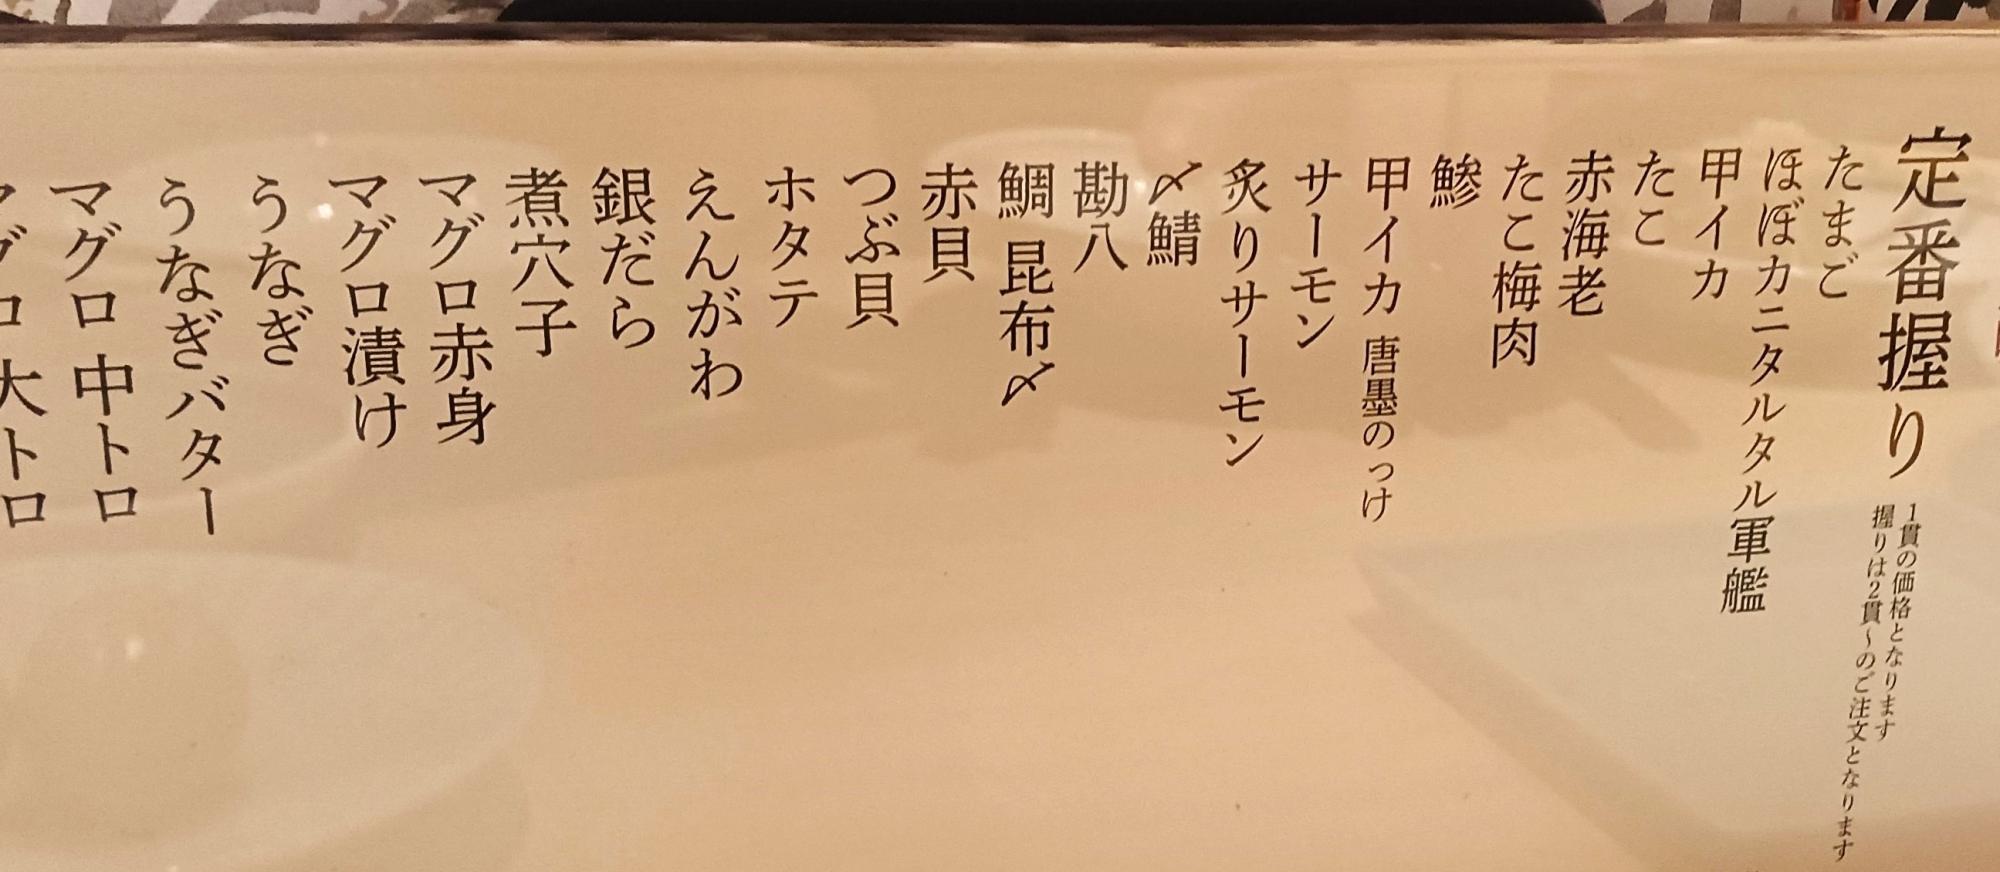 定番握り
1貫の価格となります
握りは2貫~のご注文となります
たまご
ほぼカニタルタル軍艦
甲イカ
たこ
赤海老
たこ梅肉
鯵
甲イカ 唐墨のっけ
サーモン
炙りサーモン
〆鯖
勘八
鯛 昆布〆
赤貝
つぶ貝
ホタテ
えんがわ
銀だら
煮穴子
マグロ赤身
マグロ漬け
うなぎ
うなぎバター
マグロ 中トロ
マグロ 大トロ